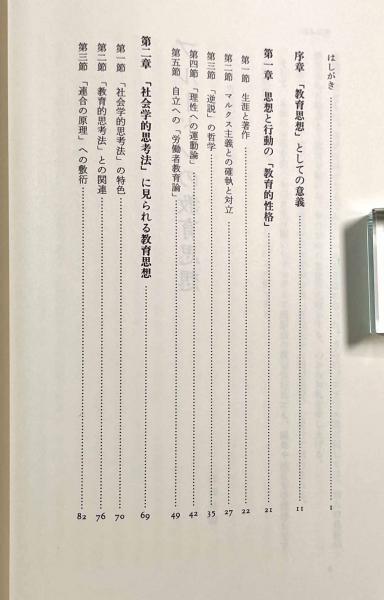 はしがき……1
序章 「教育思想」としての意義……11
第一章 思想と行動の「教育的性格」……21
第一節 生涯と著作……22
第二節 マルクス主義との確執と対立……27
第三節 「逆説」の哲学……35
第四節 「理性への運動論」……42
第五節 自立への「労働者教育論」……49
第二章 「社会学的思考法」に見られる教育思想……69
第一節 「社会学的思考法」の特色……70
第二節 「教育的思考法」との関連……76
第三節 「連合の原理」への敷衍……82